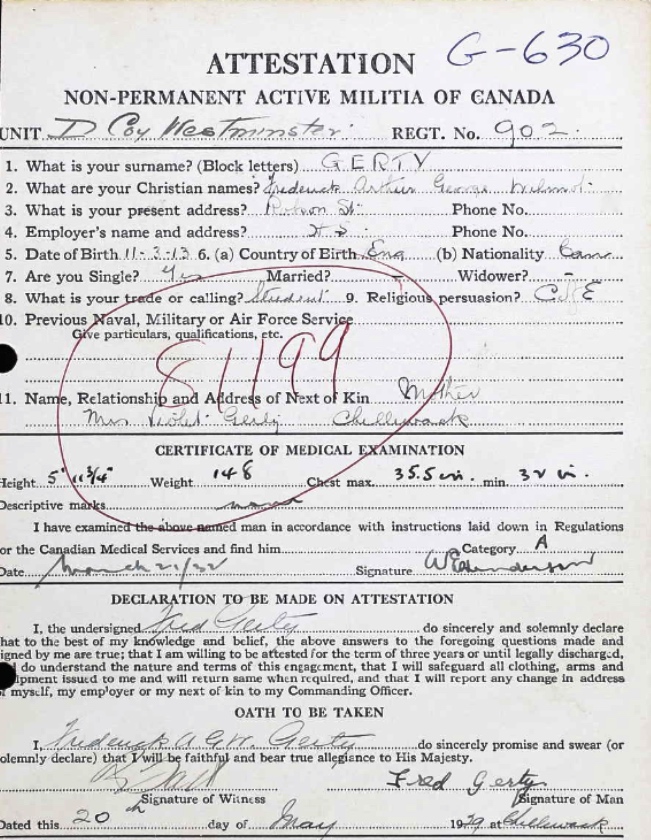 G-630
ATTESTATION
NON-PERMANENT ACTIVE MILITIA OF CANADA
UNIT D Coy Westminster. REGT. No. 902
1. What is your surname? (Block letters) GERTY
2. What are your Christian names? Frederick Arthur George Wilmot
3. What is your present address? Robson St. Phone No.
4. Employer's name and address? H S Phone No.
5. Date of Birth 11-3-13 6. (a) Country of Birth Eng (b) Nationality Can
7. Are you Single? Yes Married? - Widower? -
8. What is your trade or calling? Student 9. Religious persuasion? C of E
10. Previous Naval, Military or Air Force Service
Give particulars, qualifications, etc.
81199
11. Name, Relationship and Address of Next of Kin Mother
Mrs Violet Gerty Chilliwack
CERTIFICATE OF MEDICAL EXAMINATION
Height 5' 11 3/4" Weight 148 Chest max. 35.5 in. min. 32 in.
Descriptive marks
I have examined the above named man in accordance with instructions laid down in Regulations
or the Canadian Medical Services and find him Category A
Date March 21/32 Signature WEHenderson
DECLARATION TO BE MADE ON ATTESTATION
I, the undersigned Fred Gerty do sincerely and solemnly declare
hat to the best of my knowledge and belief, the above answers to the foregoing questions made and
igned by me are true; that I am willing to be attested for the term of three years or until legally discharged,
do understand the nature and terms of this engagement, that I will safeguard all clothing, arms and
ipment issued to me and will return same when required, and that I will report any change in address
f myself, my employer or my next of kin to my Commanding Officer.
OATH TO BE TAKEN
I, Frederick A G W. Gerty do sincerly promise and swear (or
olemnly declare) that I will be faithful and bear true allegiance to His Majesty.
Fred Gerty
Signature of Witness Signature of Man
Dated this 20 day of May 1929 at Chilliwack